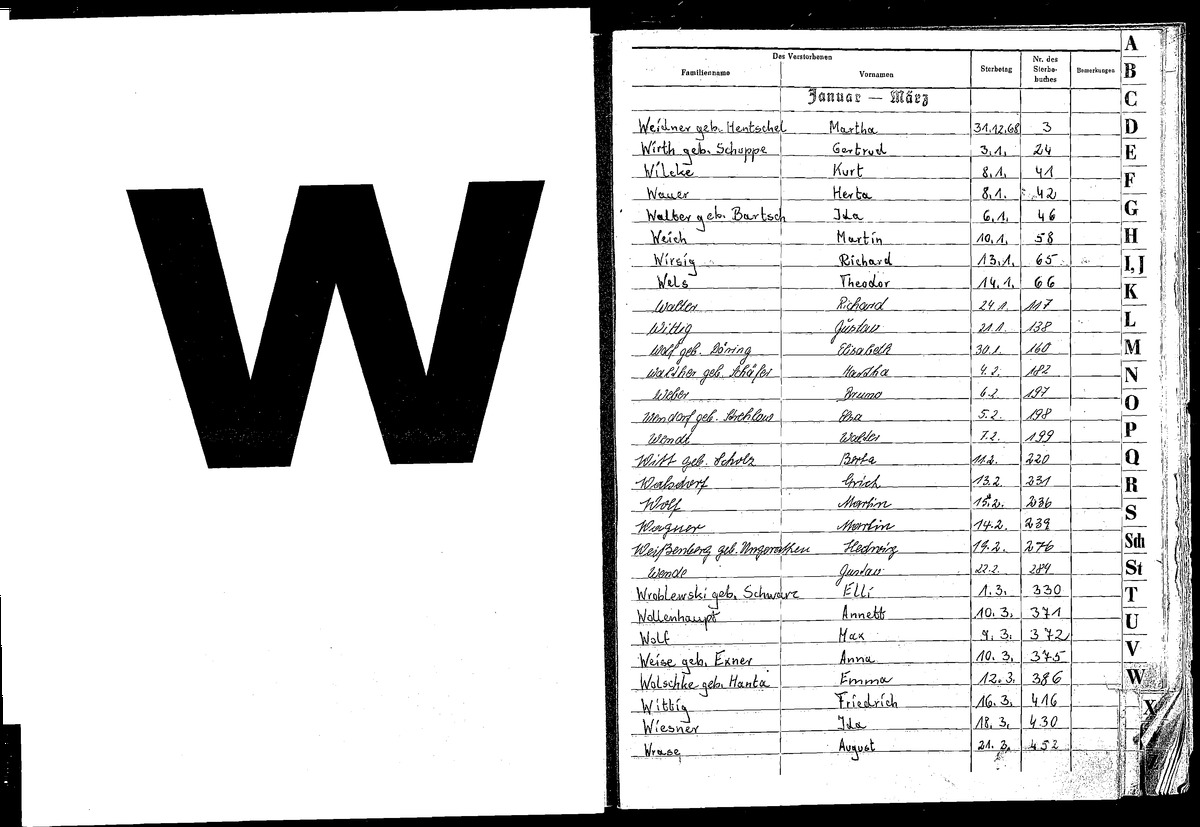 W
Des Verstorbenen
Familienname Vornamen Sterbetag Nr. des Sterbe-buches Bemerkungen
Januar — März
Weidner geb. Hentschel Martha 31.12.68 3
Wirth geb. Schoppe Gertrud 3.1. 24
Wilcke Kurt 8.1. 41
Wauer Herta 8.1. 42
Walter geb. Bartsch Ida 6.1. 46
Weich Martin 10.1. 58
Wirsig Richard 13.1. 65
Wels Theodor 14.1. 66
Walter Richard 24.1. 117
Wittig Gustav 21.1. 138
Wolf geb. Döring Elisabeth 30.1. 160
Walther geb. Schäfer Martha 4.2. 182
Weber Bruno 6.2. 197
Wendorf geb. 5.2. 198
Wende Walter 7.2. 199
Witt geb. Scholz Berta 11.2. 220
Walsdorf Erich 13.2. 231
Wolf Martin 15.2. 236
Wagner Martin 14.2. 239
Weißenberg geb. Ungerathen Hedwig 19.2. 276
Wende Gustav 22.2. 284
Wroblewski geb. Schwarz Elli 1.3. 330
Wollenhaupt Annett 10.3. 371
Wolf Max 9.3. 372
Weise geb. Exner Anna 10.3. 375
Wolschke geb. Hanta Emma 12.3. 386
Wittig Friedrich 16.3. 416
Wiesner Ida 18.3. 430
Wrase August 21.3. 452
A
B
C
D
E
F
G
H
I, J
K
L
M
N
O
P
Q
R
S
Sch
St
T
U
V
W
X
Z